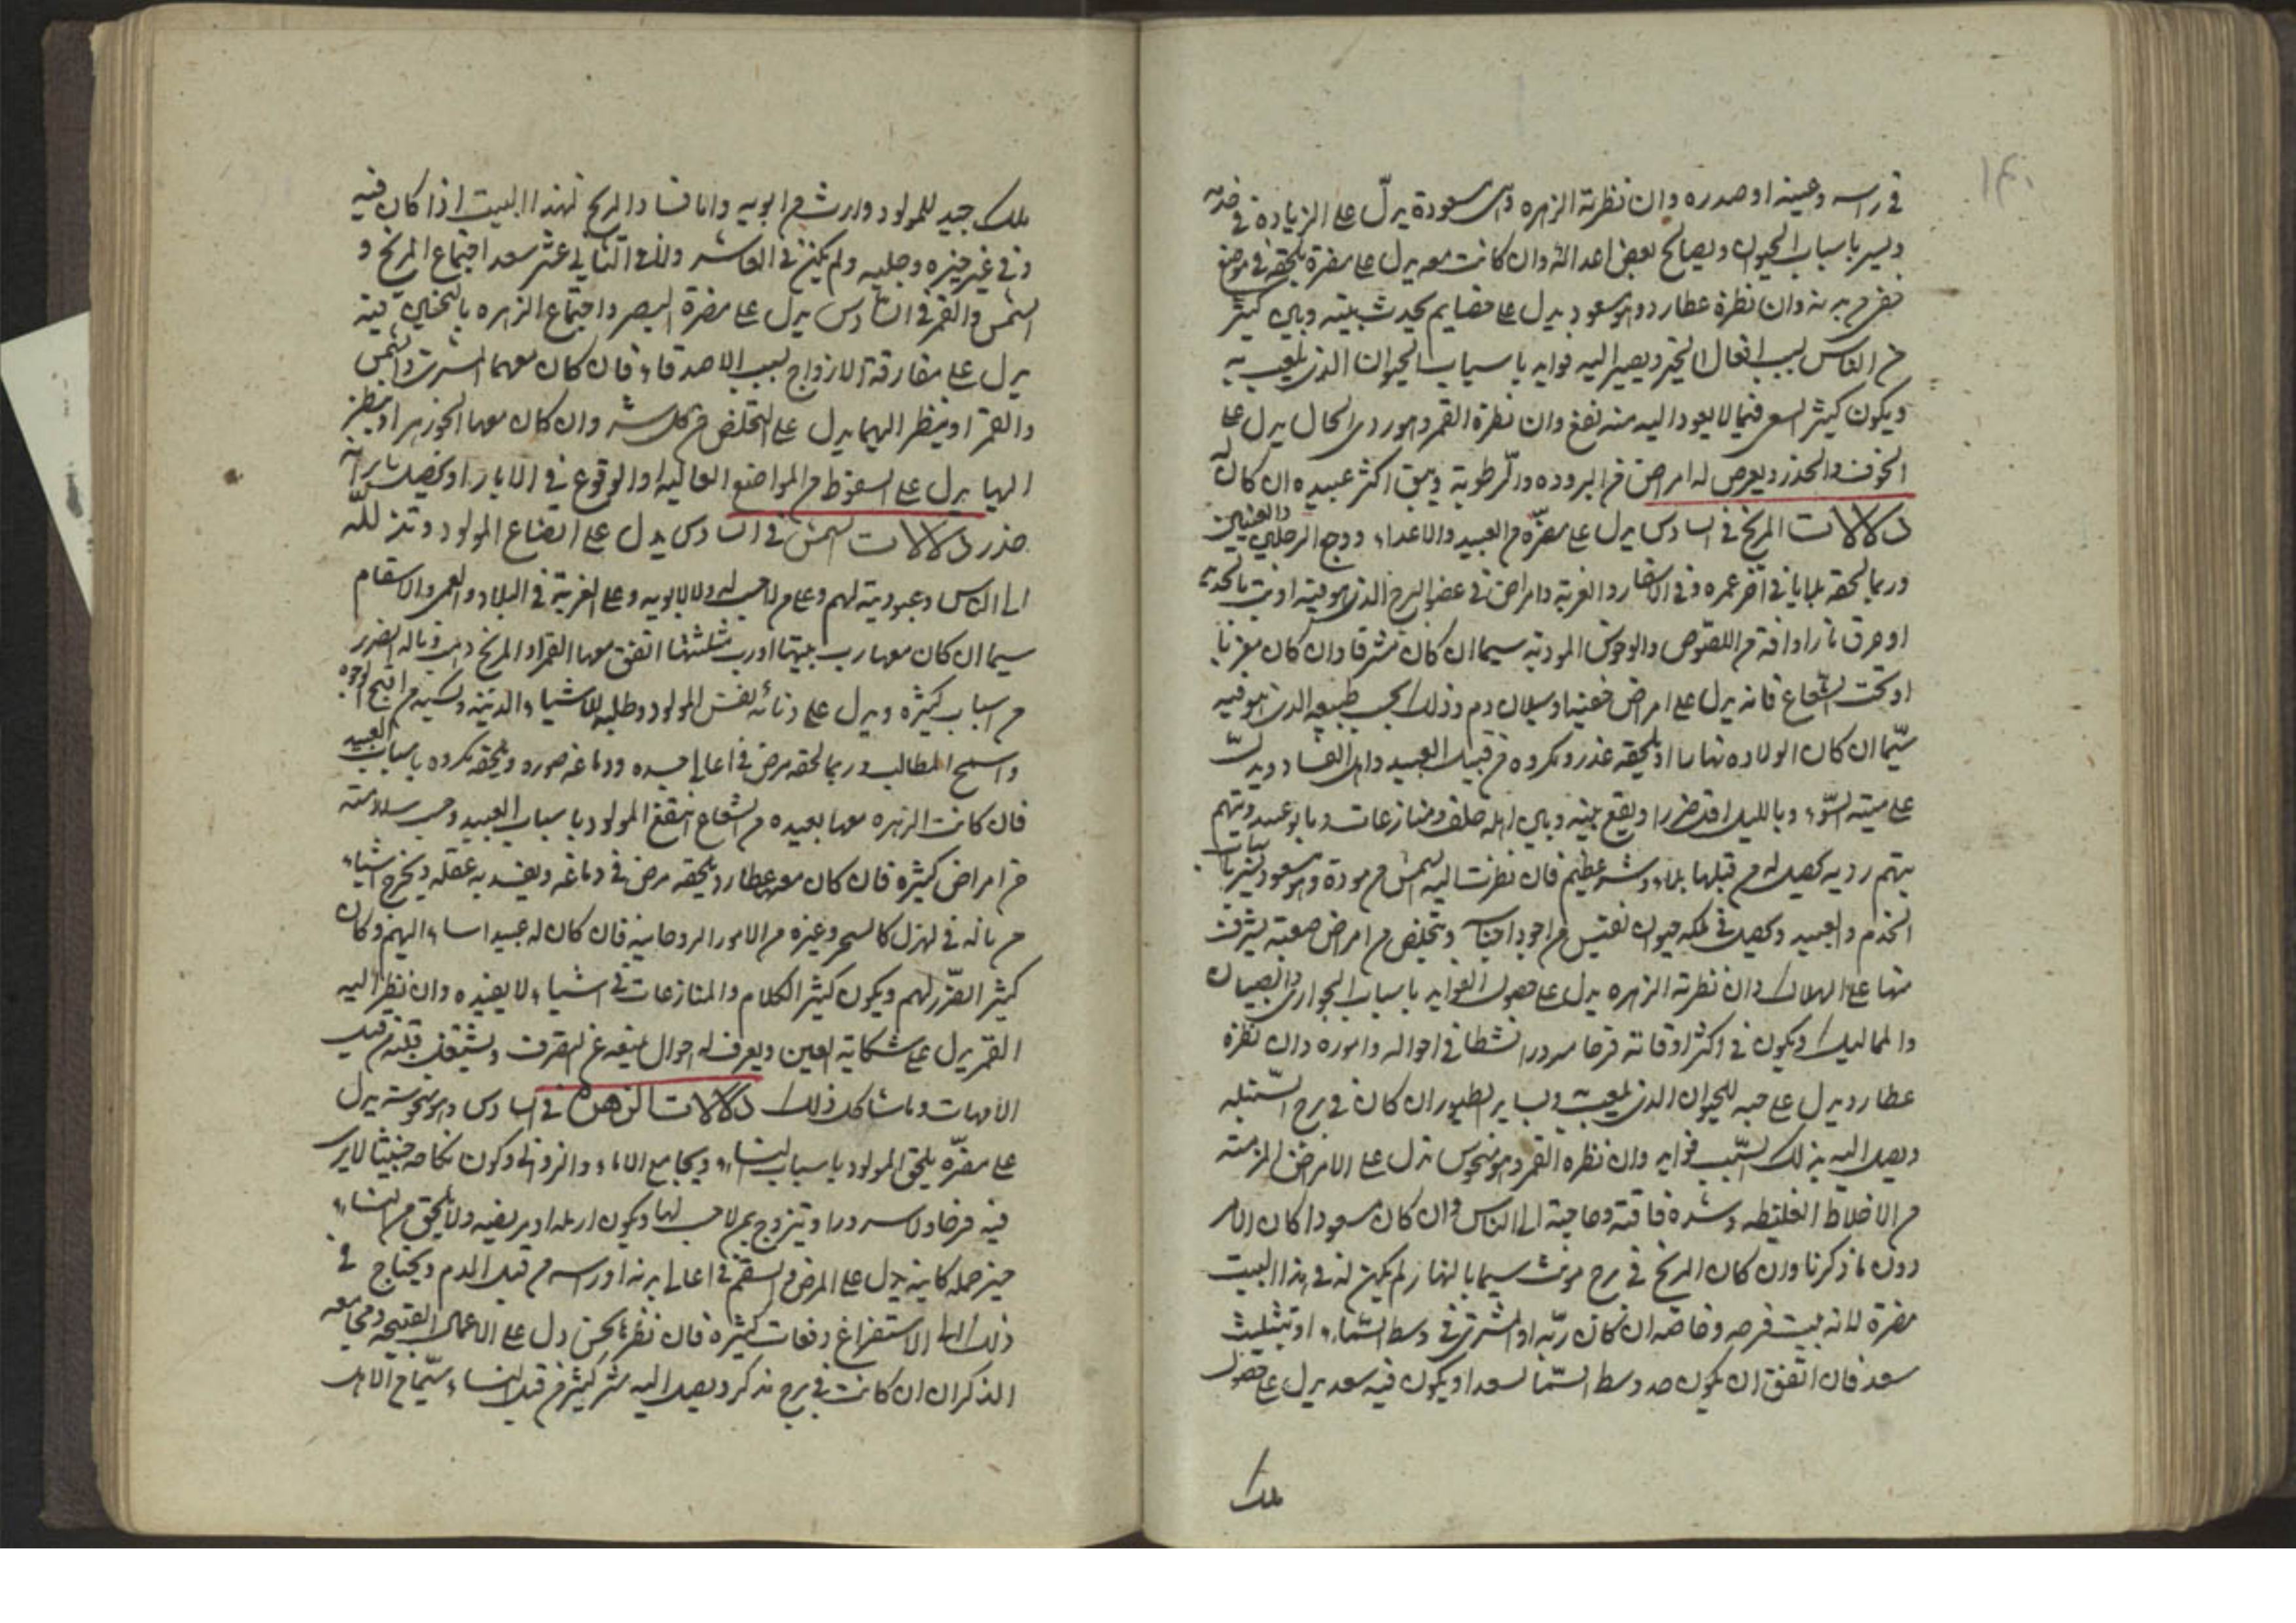 ١٤٠
في راسه وعينه او صدره وان نظرته الزهره وهي مسعودة يدلّ على الزيادة في خدمه
ويسر باسباب الحيوان ويصالح بعض اعدائه وان كانت معه يدل على مضرة تلحقه في موضع
من بدنه وان نظره عطارد وهو مسعود يدل على خصايم يحدث بينه وبين كثير
من الناس بسبب افعال الخير ويصير اليه فوايد باسباب الحيوان الذي يلعب به
ويكون كثير السعى فيما لا يعود اليه منه نفع وان نظره القمر وهو ردى الحال يدل على
الخوف والحذر ويعرض له امراض من البروده والرّطوبة ويبق اكثر عبيده ان كان له
دلالات المريخ في السادس يدل على مضرّه من العبيد والاعداء ووجع الرجلين والعينين
وربما لحقه بلايا في آخر عمره وفي الاسفار والغربة وامراض في عضو البرج الذي هو فيه او
او حرق نار او افة من اللصوص والوحوش الموذيه سيما ان كان مشرقا وان كان مغربا
او تحت الشعاع فانه يدل على امراض خفيه او سيلان دم وذلك بحسب طبيعه الذي هو فيه
سيّما ان كان الولاده نهارا او يلحقه غدر ومكروه من قبل العبيد واهل الفساد ويدلّ
على ميتة السّوء وبالليل اقل ضررا ويقع بينه وبين اهله خلف ومنازعات وربما
يتهم رديه يحصل له من قبلها بلاء وشر عظيم فان نظرت اليه الشمس من مودة وهو مسعود يسر
الخدم والعبيد ويحصل في ملكه حيوان نفيس من اجود اجناسه ويتخلص من امراض صعبة يشرف
منها على الهلاك وان نظرته الزهره يدل على حصول الفوايد باسباب الجوارى والصبيان
والمماليك ويكون في اكثر اوقاته فرحا مسرورا نشطا في احواله واموره وان نظره
عطارد يدل على حبه للحيوان الذي يلعب وبساير الطيور ان كان في برج السّنبله
ويصل اليه بذلك السّبب فوايد وان نظره القمر وهو منحوس تدل على الامراض المزمنه
من الاخلاط الغليظه وشده فاقته وحاجته الى الناس وان كان مسعودا كان الامر
دون ما ذكرنا وان كان المريخ في برج مونث سيما بالنهار لم يكن له في هذا البيت
مضرة لانه بيت فرحه وخاصه ان كان ربّه او المشترى في وسط السّماء او تثليث
سعد فان اتفق ان يكون حد وسط السّما لسعد او يكون فيه سعد يدل على حصول
ملك
ملك جيد للمولود وارث من ابويه واما فساد المريخ لهذا البيت اذا كان فيه
وفي غير حيزه وجلبه ولم يكن في العاشر ولا في الثاني عشر سعد اجتماع المريخ و
الشمس والقمر في السادس يدل على مضرة البصر واجتماع الزهره بالنحسين فيه
يدل على مفارقة الازواج بسبب الاصدقاء فان كان معهما المشترى والشمس
والقمر او ينظر اليهما يدل على التخلص من كل شر وان كان معها الجوزهر او ينظر
اليها يدل على السقوط من المواضع العاليه او الوقوع في الابار او يحصل
حذر دلالات الشمس في السادس يدل على اتضاع المولود وتذلله
الى الناس وعبوديته لهم وعلى من لا حسب له ولا لابويه وعلى الغربة في البلاد والعمى والاسقام
سيما ان كان معها رب بيتها او رب مثلثتها اتفق معها القمر او المريخ وهى وباله الضرر
من اسباب كثيره ويدل على دنائه نفس المولود وطلبه للاشياء الدنيه وكسبه من اقبح الوجوه
واسمج المطالب وربما لحقه مرض في اعالى جسده ودماغه صوره ويلحقه مكروه باسباب العبيد
فان كانت الزهره معها بعيده من الشعاع انتفع المولود باسباب العبيد وحسن سلامته
من امراض كثيره فان كان معه عطارد يلحقه مرض في دماغه ويفسد به عقله ويخرج اشياء
من باله في الهزل كالسحر وغيره من الامور الروحانيه فان كان له عبيد اساء اليهم وكان
كثير الضّرر لهم ويكون كثير الكلام والمنازعات في اشياء لا يفيده وان نظر اليه
القمر يدل على شكاية العين ويعرف له احوال يمنعه عن التصرف ويشتغل قلبه من قبل
الامهات وما شاكل ذلك دلالات الزهرة في السادس وهى منحوسة يدل
على مضرّه يلحق المولود باسباب النساء ويجامع الاماء والزوانى ويكون نكاحه خبيثا لا يرى
فيه فرحا ولا سرورا ويتزوج بمن لا حسب لها ويكون ارمله او مريضه ولا يلحق من النساء
خير جمله كافيه يدل على المرض والسقم في اعالى بدنه او راسه من قبل الدم ويحتاج في
ذلك الى الاستفراغ دفعات كثيره فان نظرها نحس دل على الاعمال القبيحه ومجامعه
الذكران ان كانت في برج مذكر ويصل اليه شر كثير من قبل النساء وسيّما من الاهل